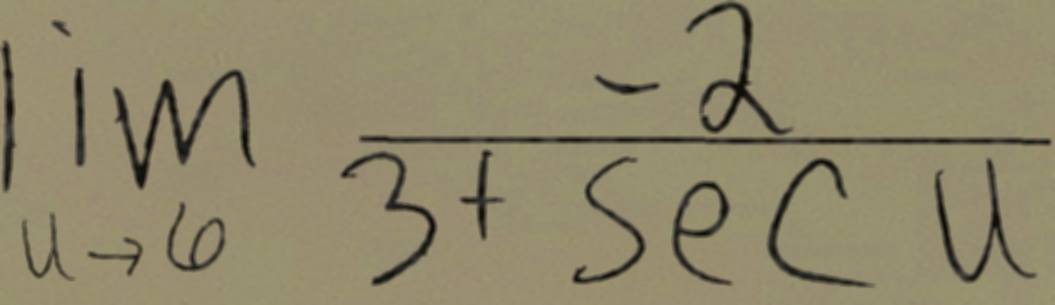 lim -2
u→6 3+ sec u